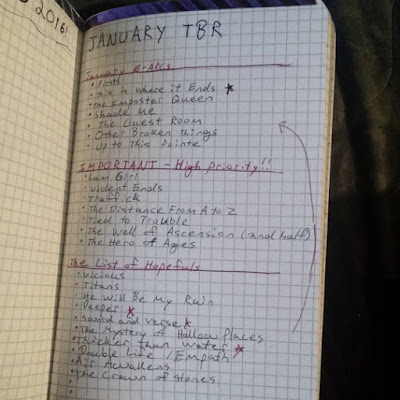 2016!
JANUARY TBR
January E-ARCs
• Firsts
• This is Where it Ends ★
• The Imposter Queen
• Shade Me
• The Guest Room
• Other Broken Things
• Up to This Pointe
IMPORTANT - High Priority!!
• Cam Girl
• Violent Ends
• Traffick
• The Distance From A to Z
• Tied to Trouble
• The Well of Ascension (2nd half)
• The Hero of Ages
The List of Hopefuls
• Vicious
• Titans
• He Will Be My Ruin
• Peeper ★
• Sword and Verse ★
• The Mystery of Hollow Places
• Thicker than Water ★
• Double Life / Empath
• Air Awakens
• The Crown of Stones